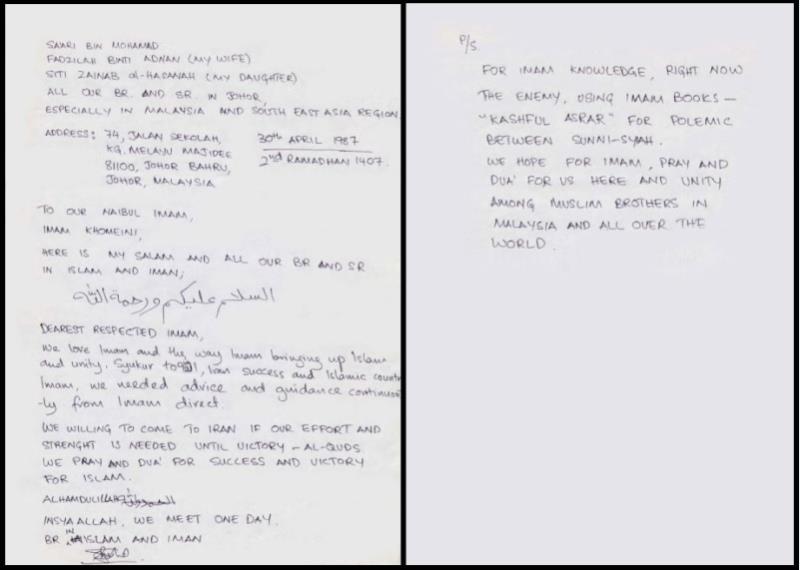 SAARI BIN MOHAMAD
FADZILAH BINTI ADNAN (MY WIFE)
SITI ZAINAB al-HASANAH (MY DAUGHTER)
ALL OUR BR. AND SR. IN JOHOR,
ESPECIALLY IN MALAYSIA AND SOUTH EAST ASIA REGION.
ADDRESS: 74, JALAN SEKOLAH,
KG. MELAYU MAJIDEE
81100, JOHOR BAHRU,
JOHOR, MALAYSIA
30th APRIL 1987
2nd RAMADHAN 1407.
TO OUR NAIBUL IMAM,
IMAM KHOMEINI,
HERE IS MY SALAM AND ALL OUR BR AND SR
IN ISLAM AND IMAN;
السلام عليكم ورحمة الله
DEAREST RESPECTED IMAM,
We love Imam and the way Imam bringing up Islam
and unity. Syukur to, Iran success and Islamic countr
Imam, we needed advice and guidance continuou
-ly from Imam direct.
WE WILLING TO COME TO IRAN IF OUR EFFORT AND
STRENGHT IS NEEDED UNTIL VICTORY - AL-QUDS
WE PRAY AND DUA' FOR SUCCESS AND VICTORY
FOR ISLAM.
ALHAMDULILLAH
INSYAALLAH, WE MEET ONE DAY.
BR IN ISLAM AND IMAN
P/S.
FOR IMAM KNOWLEDGE, RIGHT NOW
THE ENEMY, USING IMAM BOOKS -
"KASHFUL ASRAR" FOR POLEMIC
BETWEEN SUNNI-SYIAH.
WE HOPE FOR IMAM, PRAY AND
DUA' FOR US HERE AND UNITY
AMONG MUSLIM BROTHERS IN
MALAYSIA AND ALL OVER THE
WORLD.